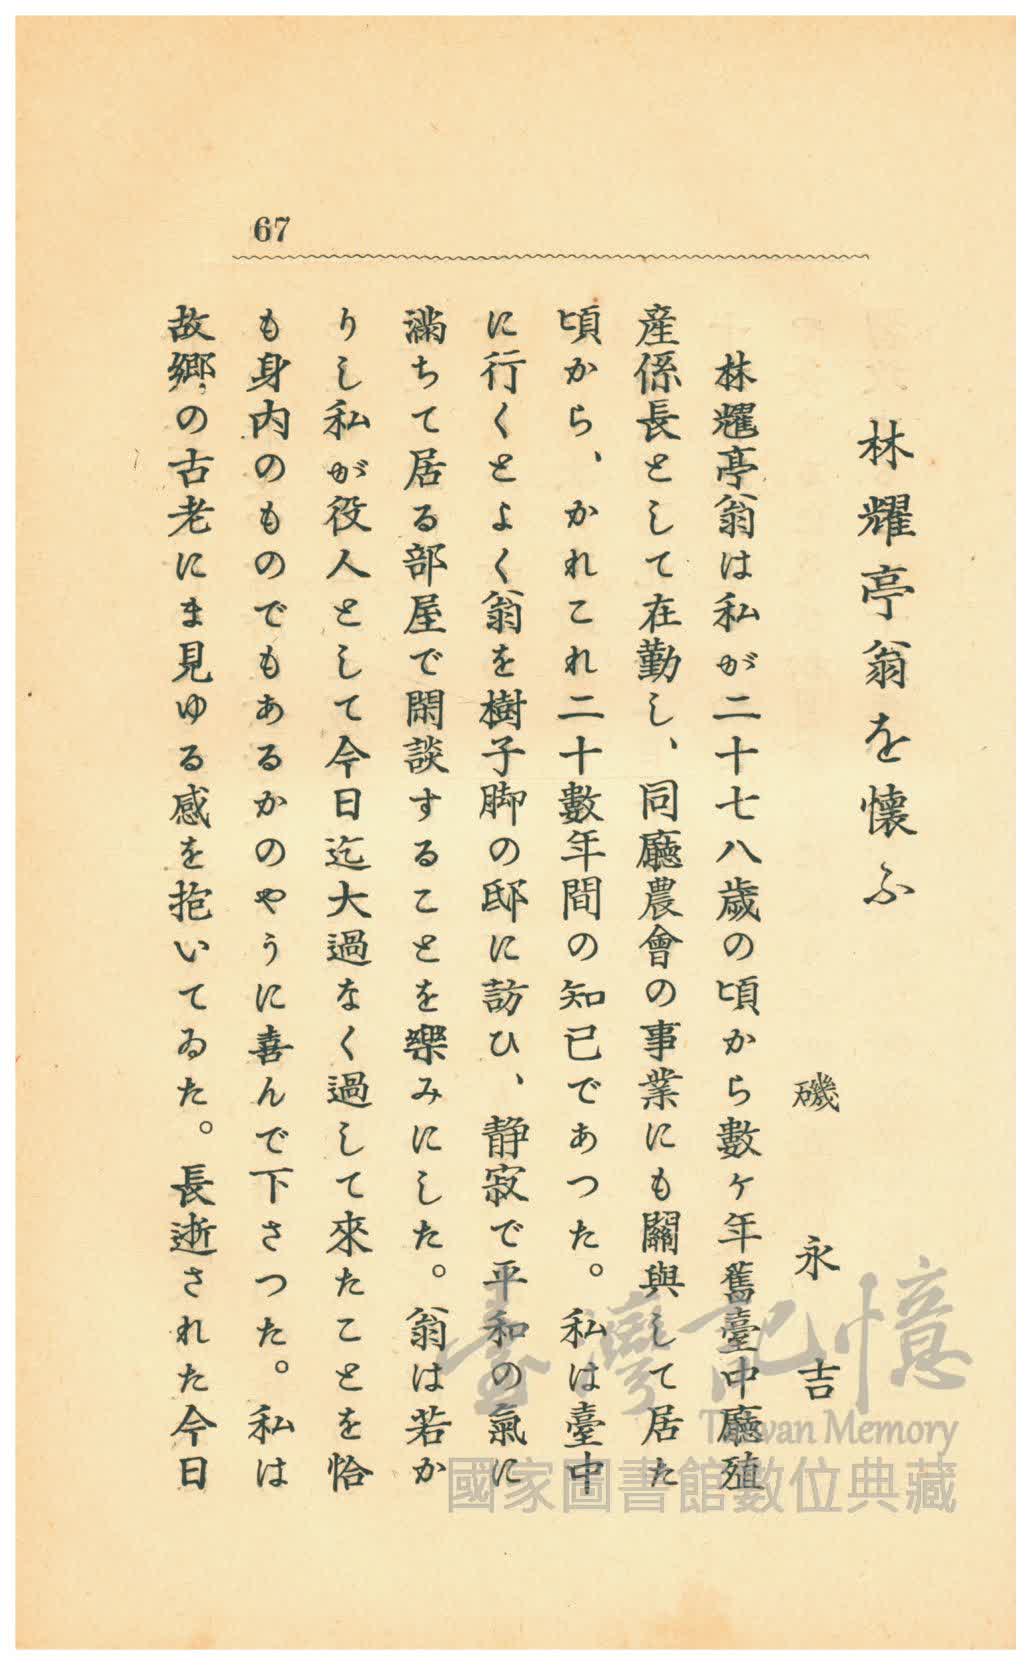 67
林耀亭翁を懷ふ
磯永吉
林耀亭翁は私が二十七八歳の頃から數ヶ年舊臺中廳殖
産係長として在勤し、同廳農會の事業にも關與して居た
頃から、かれこれ二十數年間の知己であつた。私は臺中
に行くとよく翁を樹子脚の邸に訪ひ、静寂で平和の氣に
滿ちて居る部屋で閑談することを樂みにした。翁は若か
りし私が役人として今日迄大過なく過して來たことを恰
も身内のものでもあるかのやうに喜んで下さつた。私は
故郷の古老にま見ゆる感を抱いてゐた。長逝された今日
臺灣記憶
Taiwan Memory
國家圖書館數位典藏